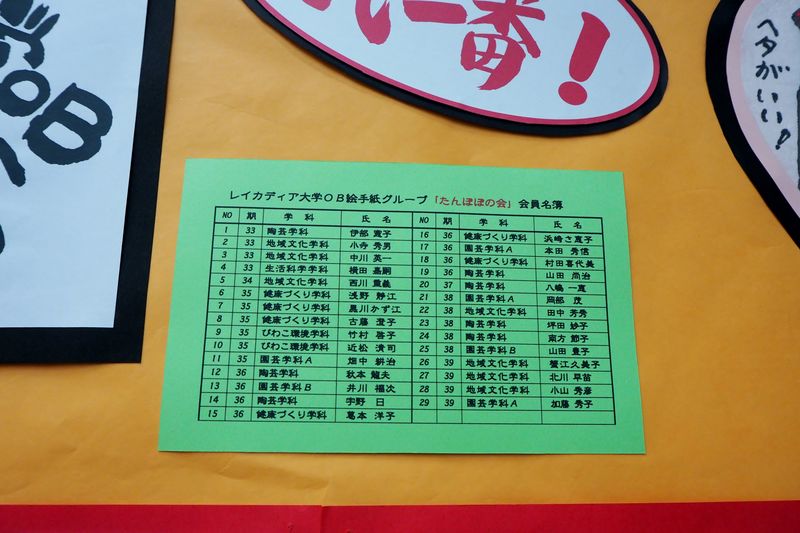 OB
一番!
ヘタがいい!
レイカディア大学OB絵手紙グループ「たんぽぽの会」会員名簿
NO 期 学科 氏名
1 33 陶芸学科 伊部 寛子
2 33 地域文化学科 小寺 秀男
3 33 地域文化学科 中川 英一
4 33 生活科学学科 横田 嘉嗣
5 34 地域文化学科 西川 重義
6 35 健康づくり学科 浅野 静江
7 35 健康づくり学科 黒川かず江
8 35 健康づくり学科 古藤 澄子
9 35 びわこ環境学科 竹村 容子
10 35 びわこ環境学科 近松 清司
11 35 園芸学科A 畑中 耕治
12 36 陶芸学科 秋本 龍夫
13 36 園芸学科B 井川 福次
14 36 陶芸学科 宇野 日
15 36 健康づくり学科 葛本 洋子
NO 期 学科 氏名
16 36 健康づくり学科 浜崎さ恵子
17 36 園芸学科A 本田 秀信
18 36 健康づくり学科 村田喜代美
19 36 陶芸学科 山田 尚治
20 37 陶芸学科 八嶋 一恵
21 38 園芸学科A 岡部 茂
22 38 地域文化学科 田中 芳秀
23 38 陶芸学科 坪田 妙子
24 38 陶芸学科 南方 節子
25 38 園芸学科B 山田 豊子
26 39 地域文化学科 蟹江久美子
27 39 地域文化学科 北川 早苗
28 39 地域文化学科 小山 秀彦
29 39 園芸学科A 加藤 秀子